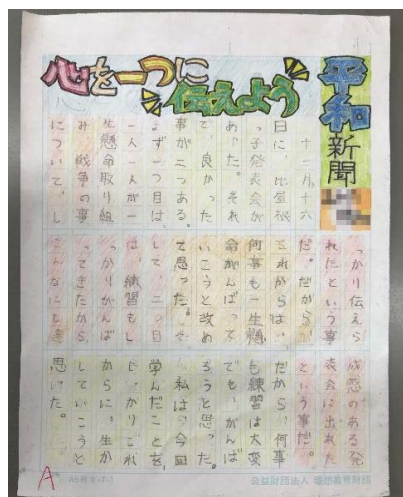 平和新聞
心を一つに
伝えよう
十二月十六
日に、比屋根
っ子発表会が
あった。それ
で、良かった
事が二つある。
まず一つ目は、
一人一人が一
生懸命取り組
み、戦争の事
について、し
っかり伝えら
れたという事
だ。だから、
これからは、
何事も一生懸
命がんばって
いこうと改め
て思った。そ
して、二つ目
は、練習もし
っかりがんば
ってきたから
こんなにも達
成感のある発
表会に出れた
という事だ。
だから、何事
も練習は大変
でも、がんば
ろうと思った。
私は、今回
学んだことを、
しっかりこれ
からに、生か
していこうと
思った。
A
公益財団法人 理想教育財団